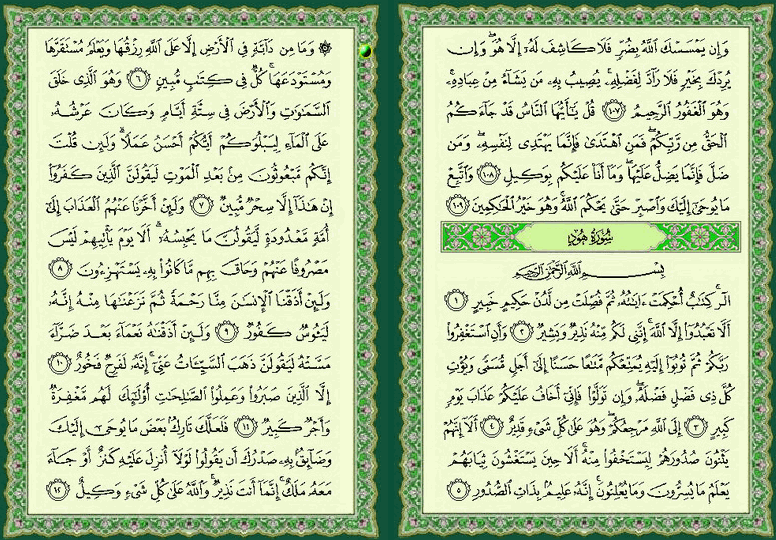 وَإِن يَمْسَسْكَ ٱللَّهُ بِضُرٍّ فَلَا كَاشِفَ لَهُۥٓ إِلَّا هُوَ ۖ وَإِن
يُرِدْكَ بِخَيْرٍ فَلَا رَآدَّ لِفَضْلِهِۦ ۚ يُصِيبُ بِهِۦ مَن يَشَآءُ مِنْ عِبَادِهِۦ ۚ
وَهُوَ ٱلْغَفُورُ ٱلرَّحِيمُ ١٠٧ قُلْ يَـٰٓأَيُّهَا ٱلنَّاسُ قَدْ جَآءَكُمُ
ٱلْحَقُّ مِن رَّبِّكُمْ ۖ فَمَنِ ٱهْتَدَىٰ فَإِنَّمَا يَهْتَدِى لِنَفْسِهِۦ ۖ وَمَن
ضَلَّ فَإِنَّمَا يَضِلُّ عَلَيْهَا ۖ وَمَآ أَنَا۠ عَلَيْكُم بِوَكِيلٍ ١٠٨ وَٱتَّبِعْ
مَا يُوحَىٰٓ إِلَيْكَ وَٱصْبِرْ حَتَّىٰ يَحْكُمَ ٱللَّهُ ۚ وَهُوَ خَيْرُ ٱلْحَـٰكِمِينَ ١٠٩
سُورَةُ هُودٍ
بِسْمِ ٱللَّهِ ٱلرَّحْمَـٰنِ ٱلرَّحِيمِ
الٓر ۚ كِتَـٰبٌ أُحْكِمَتْ ءَايَـٰتُهُۥ ثُمَّ فُصِّلَتْ مِن لَّدُنْ حَكِيمٍ خَبِيرٍ ١
أَلَّا تَعْبُدُوٓا۟ إِلَّا ٱللَّهَ ۚ إِنَّنِى لَكُم مِّنْهُ نَذِيرٌ وَبَشِيرٌ ٢ وَأَنِ ٱسْتَغْفِرُوا۟
رَبَّكُمْ ثُمَّ تُوبُوٓا۟ إِلَيْهِ يُمَتِّعْكُم مَّتَـٰعًا حَسَنًا إِلَىٰٓ أَجَلٍ مُّسَمًّى وَيُؤْتِ
كُلَّ ذِى فَضْلٍ فَضْلَهُۥ ۖ وَإِن تَوَلَّوْا۟ فَإِنِّىٓ أَخَافُ عَلَيْكُمْ عَذَابَ يَوْمٍ
كَبِيرٍ ٣ إِلَى ٱللَّهِ مَرْجِعُكُمْ ۖ وَهُوَ عَلَىٰ كُلِّ شَىْءٍ قَدِيرٌ ٤ أَلَآ إِنَّهُمْ
يَثْنُونَ صُدُورَهُمْ لِيَسْتَخْفُوا۟ مِنْهُ ۚ أَلَا حِينَ يَسْتَغْشُونَ ثِيَابَهُمْ
يَعْلَمُ مَا يُسِرُّونَ وَمَا يُعْلِنُونَ ۚ إِنَّهُۥ عَلِيمٌۢ بِذَاتِ ٱلصُّدُورِ ٥
۞ وَمَا مِن دَآبَّةٍ فِى ٱلْأَرْضِ إِلَّا عَلَى ٱللَّهِ رِزْقُهَا وَيَعْلَمُ مُسْتَقَرَّهَا
وَمُسْتَوْدَعَهَا ۚ كُلٌّ فِى كِتَـٰبٍ مُّبِينٍ ٦ وَهُوَ ٱلَّذِى خَلَقَ
ٱلسَّمَـٰوَٰتِ وَٱلْأَرْضَ فِى سِتَّةِ أَيَّامٍ وَكَانَ عَرْشُهُۥ
عَلَى ٱلْمَآءِ لِيَبْلُوَكُمْ أَيُّكُمْ أَحْسَنُ عَمَلًا ۗ وَلَئِن قُلْتَ
إِنَّكُم مَّبْعُوثُونَ مِنۢ بَعْدِ ٱلْمَوْتِ لَيَقُولَنَّ ٱلَّذِينَ كَفَرُوٓا۟
إِنْ هَـٰذَآ إِلَّا سِحْرٌ مُّبِينٌ ٧ وَلَئِنْ أَخَّرْنَا عَنْهُمُ ٱلْعَذَابَ إِلَىٰٓ
أُمَّةٍ مَّعْدُودَةٍ لَّيَقُولُنَّ مَا يَحْبِسُهُۥٓ ۗ أَلَا يَوْمَ يَأْتِيهِمْ لَيْسَ
مَصْرُوفًا عَنْهُمْ وَحَاقَ بِهِم مَّا كَانُوا۟ بِهِۦ يَسْتَهْزِءُونَ ٨
وَلَئِنْ أَذَقْنَا ٱلْإِنسَـٰنَ مِنَّا رَحْمَةً ثُمَّ نَزَعْنَـٰهَا مِنْهُ إِنَّهُۥ
لَيَـُٔوسٌ كَفُورٌ ٩ وَلَئِنْ أَذَقْنَـٰهُ نَعْمَآءَ بَعْدَ ضَرَّآءَ
مَسَّتْهُ لَيَقُولَنَّ ذَهَبَ ٱلسَّيِّـَٔاتُ عَنِّىٓ ۚ إِنَّهُۥ لَفَرِحٌ فَخُورٌ ١٠
إِلَّا ٱلَّذِينَ صَبَرُوا۟ وَعَمِلُوا۟ ٱلصَّـٰلِحَـٰتِ أُو۟لَـٰٓئِكَ لَهُم مَّغْفِرَةٌ
وَأَجْرٌ كَبِيرٌ ١١ فَلَعَلَّكَ تَارِكٌۢ بَعْضَ مَا يُوحَىٰٓ إِلَيْكَ
وَضَآئِقٌۢ بِهِۦ صَدْرُكَ أَن يَقُولُوا۟ لَوْلَآ أُنزِلَ عَلَيْهِ كَنزٌ أَوْ جَآءَ
مَعَهُۥ مَلَكٌ ۚ إِنَّمَآ أَنتَ نَذِيرٌ ۚ وَٱللَّهُ عَلَىٰ كُلِّ شَىْءٍ وَكِيلٌ ١٢